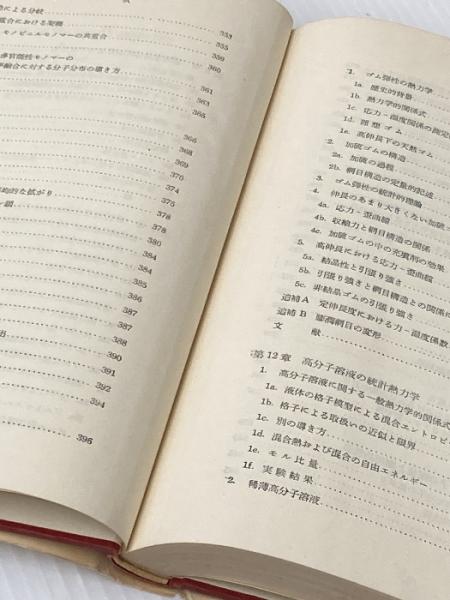 による分岐
353
重合における架橋
355
モノビニルモノマーの共重合
359
360
多官能性モノマーの
結合に対する分子分布の導き方
361
363
365
366
368
369
370
374
均的な拡がり
375
378
378
384
384
384
385
386
387
388
390
391
392
394
396
1. ゴム弾性の熱力学
1a. 歴史的背景
1b. 熱力学的関係式
1c. 応力-温度関係の測定
1d. 理想ゴム
1e. 高伸長下の天然ゴム
2. 加硫ゴムの構造
2a. 加硫の過程
2b. 網目構造の定量的記述
3. ゴム弾性の統計的理論
4. 伸長のあまり大きくない加硫
4a. 応力-歪曲線
4b. 収縮力と網目構造の関係
4c. 加硫ゴムの中の充填剤の効果
5. 高伸長における応力-歪曲線
5a. 結晶性と引張り強さ
5b. 引張り強さと網目構造との関係
5c. 非結晶ゴムの引張り強さ
追補A 定伸長度における力-温度係数
追補B 膨潤網目の変形
文 献
第12章 高分子溶液の統計熱力学
1. 高分子溶液に関する一般熱力学的関係式
1a. 液体の格子模型による混合エントロピ
1b. 格子による取扱いの近似と限界
1c. 別の導き方
1d. 混合熱および混合の自由エネルギー
1e. モル比量
1f. 実験結果
2. 稀薄高分子溶液